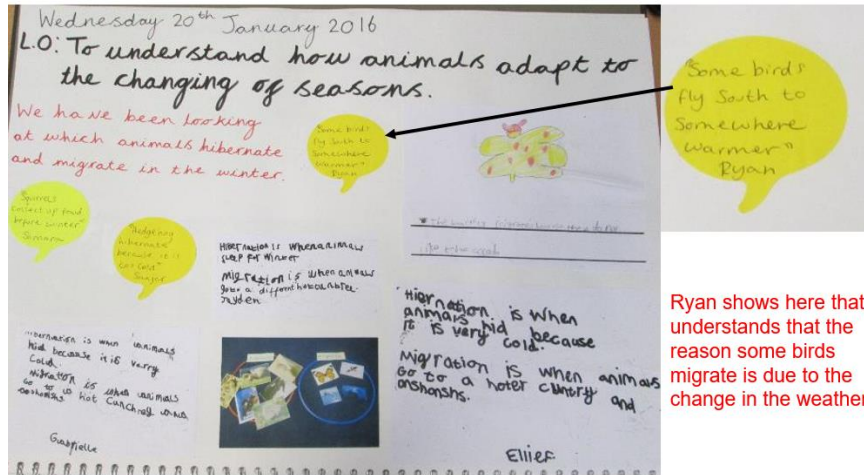 Wednesday 20th January 2016
L.O: To understand how animals adapt to
the changing of seasons.
We have been looking
at which animals hibernate
and migrate in the winter.
"Some birds
fly South to
Somewhere
warmer"
Ryan
"Some birds
fly South to
Somewhere
warmer"
Ryan
"Squirrels
collect up food
before winter"
"Hedgehog
hibernate
because it is
to cold"
Hibernation is when animals
sleep for winter
Migration is when animals
go to a different
Jayden
like the
Hibernation is when animals
hid because it is verry
cold.
Migration is when animals
Go to a hot
Gabrielle
Hiernation is when
animals hid because
it is very cold.
Migration is when animals
Go to a hoter cluntry and
onshonshs.
Ellief
Ryan shows here that
understands that the
reason some birds
migrate is due to the
change in the weather